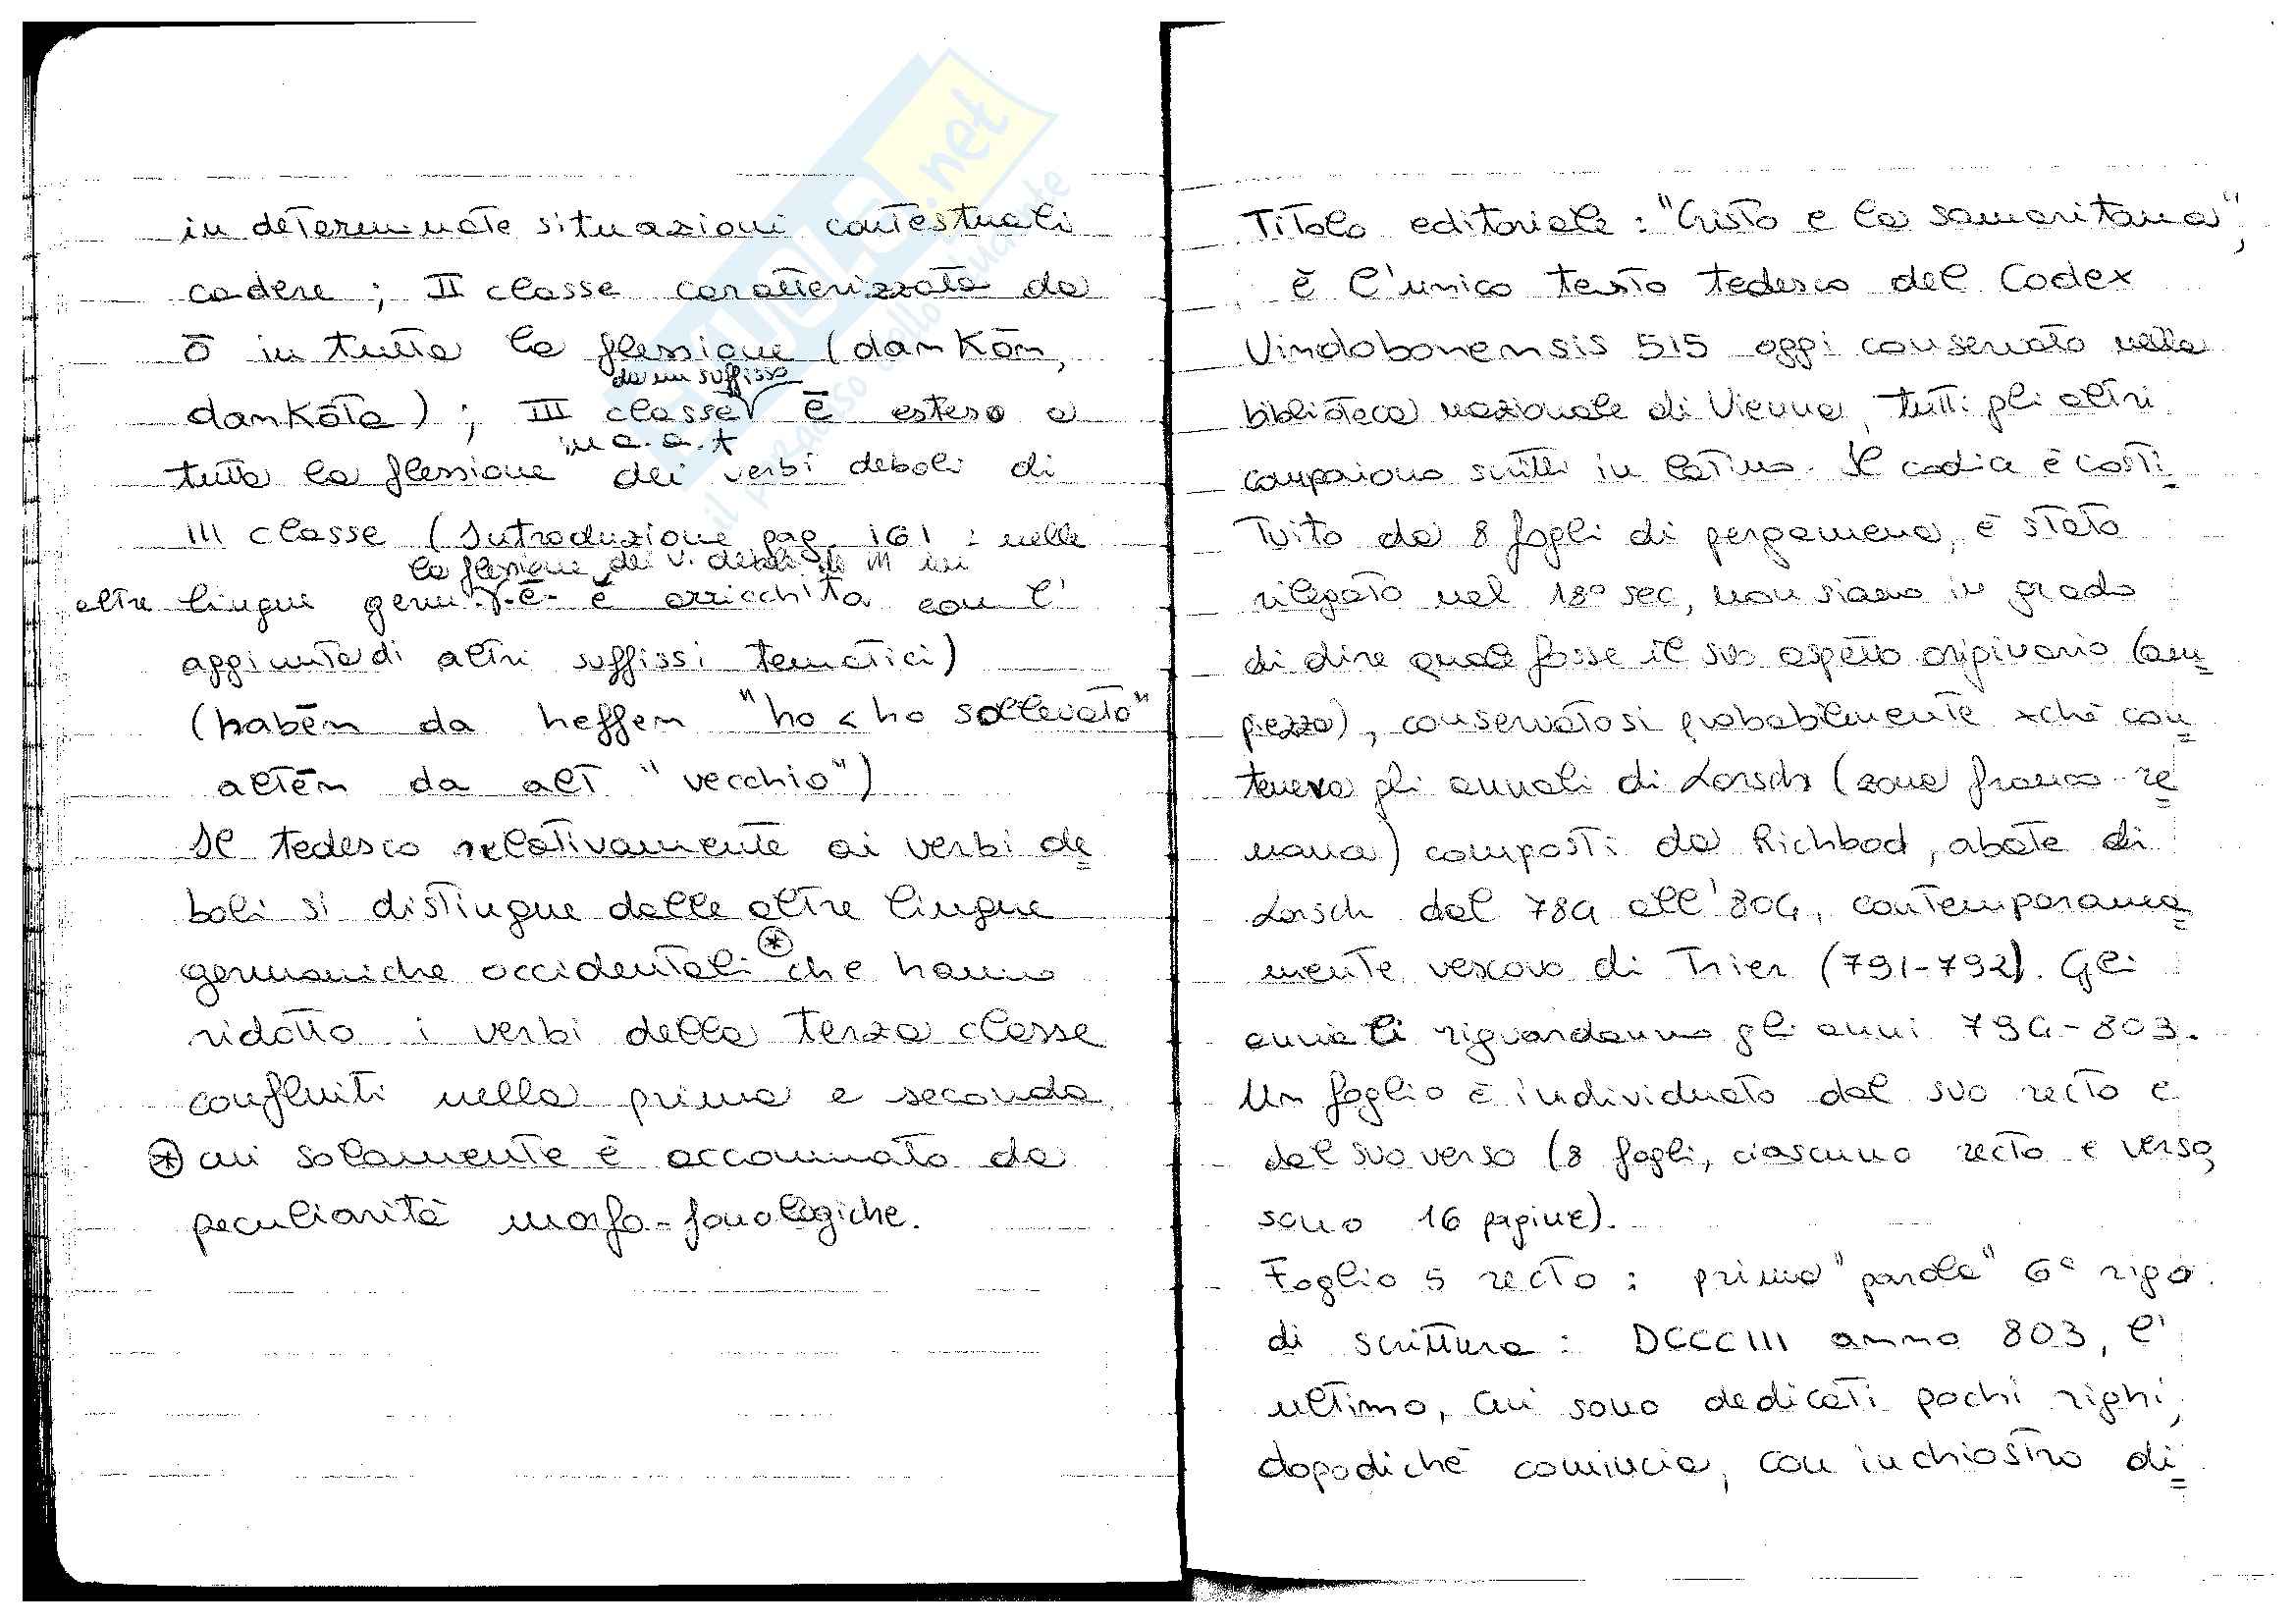 in determinate situazioni contestuali
cadere ; II classe caratterizzata da
ō in tutta la flessione (dankōn,
da un suffisso
dankōta) ; III classe ē esteso a
in a.a.t
tutta la flessione dei verbi deboli di
III classe (Introduzione pag. 161 : nelle
la flessione dei v. deboli di III in
altre lingue germ. è arricchita con l'
aggiunta di altri suffissi tematici)
(habēn da heffen "ho < ho sollevato"
altēn da alt "vecchio")
Il tedesco relativamente ai verbi de=
boli si distingue dalle altre lingue
germaniche occidentali ⊛ che hanno
ridotto i verbi della terza classe
confluiti nella prima e seconda
⊛ cui solamente è accomunato da
peculiarità morfo-fonologiche.
Titolo editoriale : "Cristo e la samaritana",
è l'unico testo tedesco del Codex
Vindobonensis 515 oggi conservato nella
biblioteca nazionale di Vienna, tutti gli altri
compaiono scritti in latino. Il codice è costi-
tuito da 8 fogli di pergamena, è stato
rilegato nel 18° sec, non siamo in grado
di dire quale fosse il suo aspetto originario (am=
piezza), conservatosi probabilmente xché con=
teneva gli annali di Lorsch (zona franco-re=
nana) composti da Richbod, abate di
Lorsch dal 784 all'804, contemporanea=
mente vescovo di Trier (791-792). Gli
annali riguardanno gli anni 794-803.
Un foglio è individuato dal suo recto e
dal suo verso (8 fogli, ciascuno recto e verso,
sono 16 pagine).
Foglio 5 recto : prima "parola" 6° rigo
di scrittura : DCCCIII anno 803, l'
ultimo, cui sono dedicati pochi righi,
dopodiché comincia, con inchiostro di=
.net